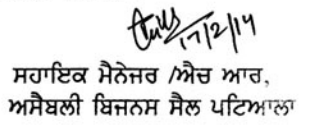 17/2/14
ਸਹਾਇਕ ਮੈਨੇਜਰ /ਐਚ ਆਰ,
ਅਸੈਬਲੀ ਬਿਜਨਸ ਸੈਲ ਪਟਿਆਲਾ